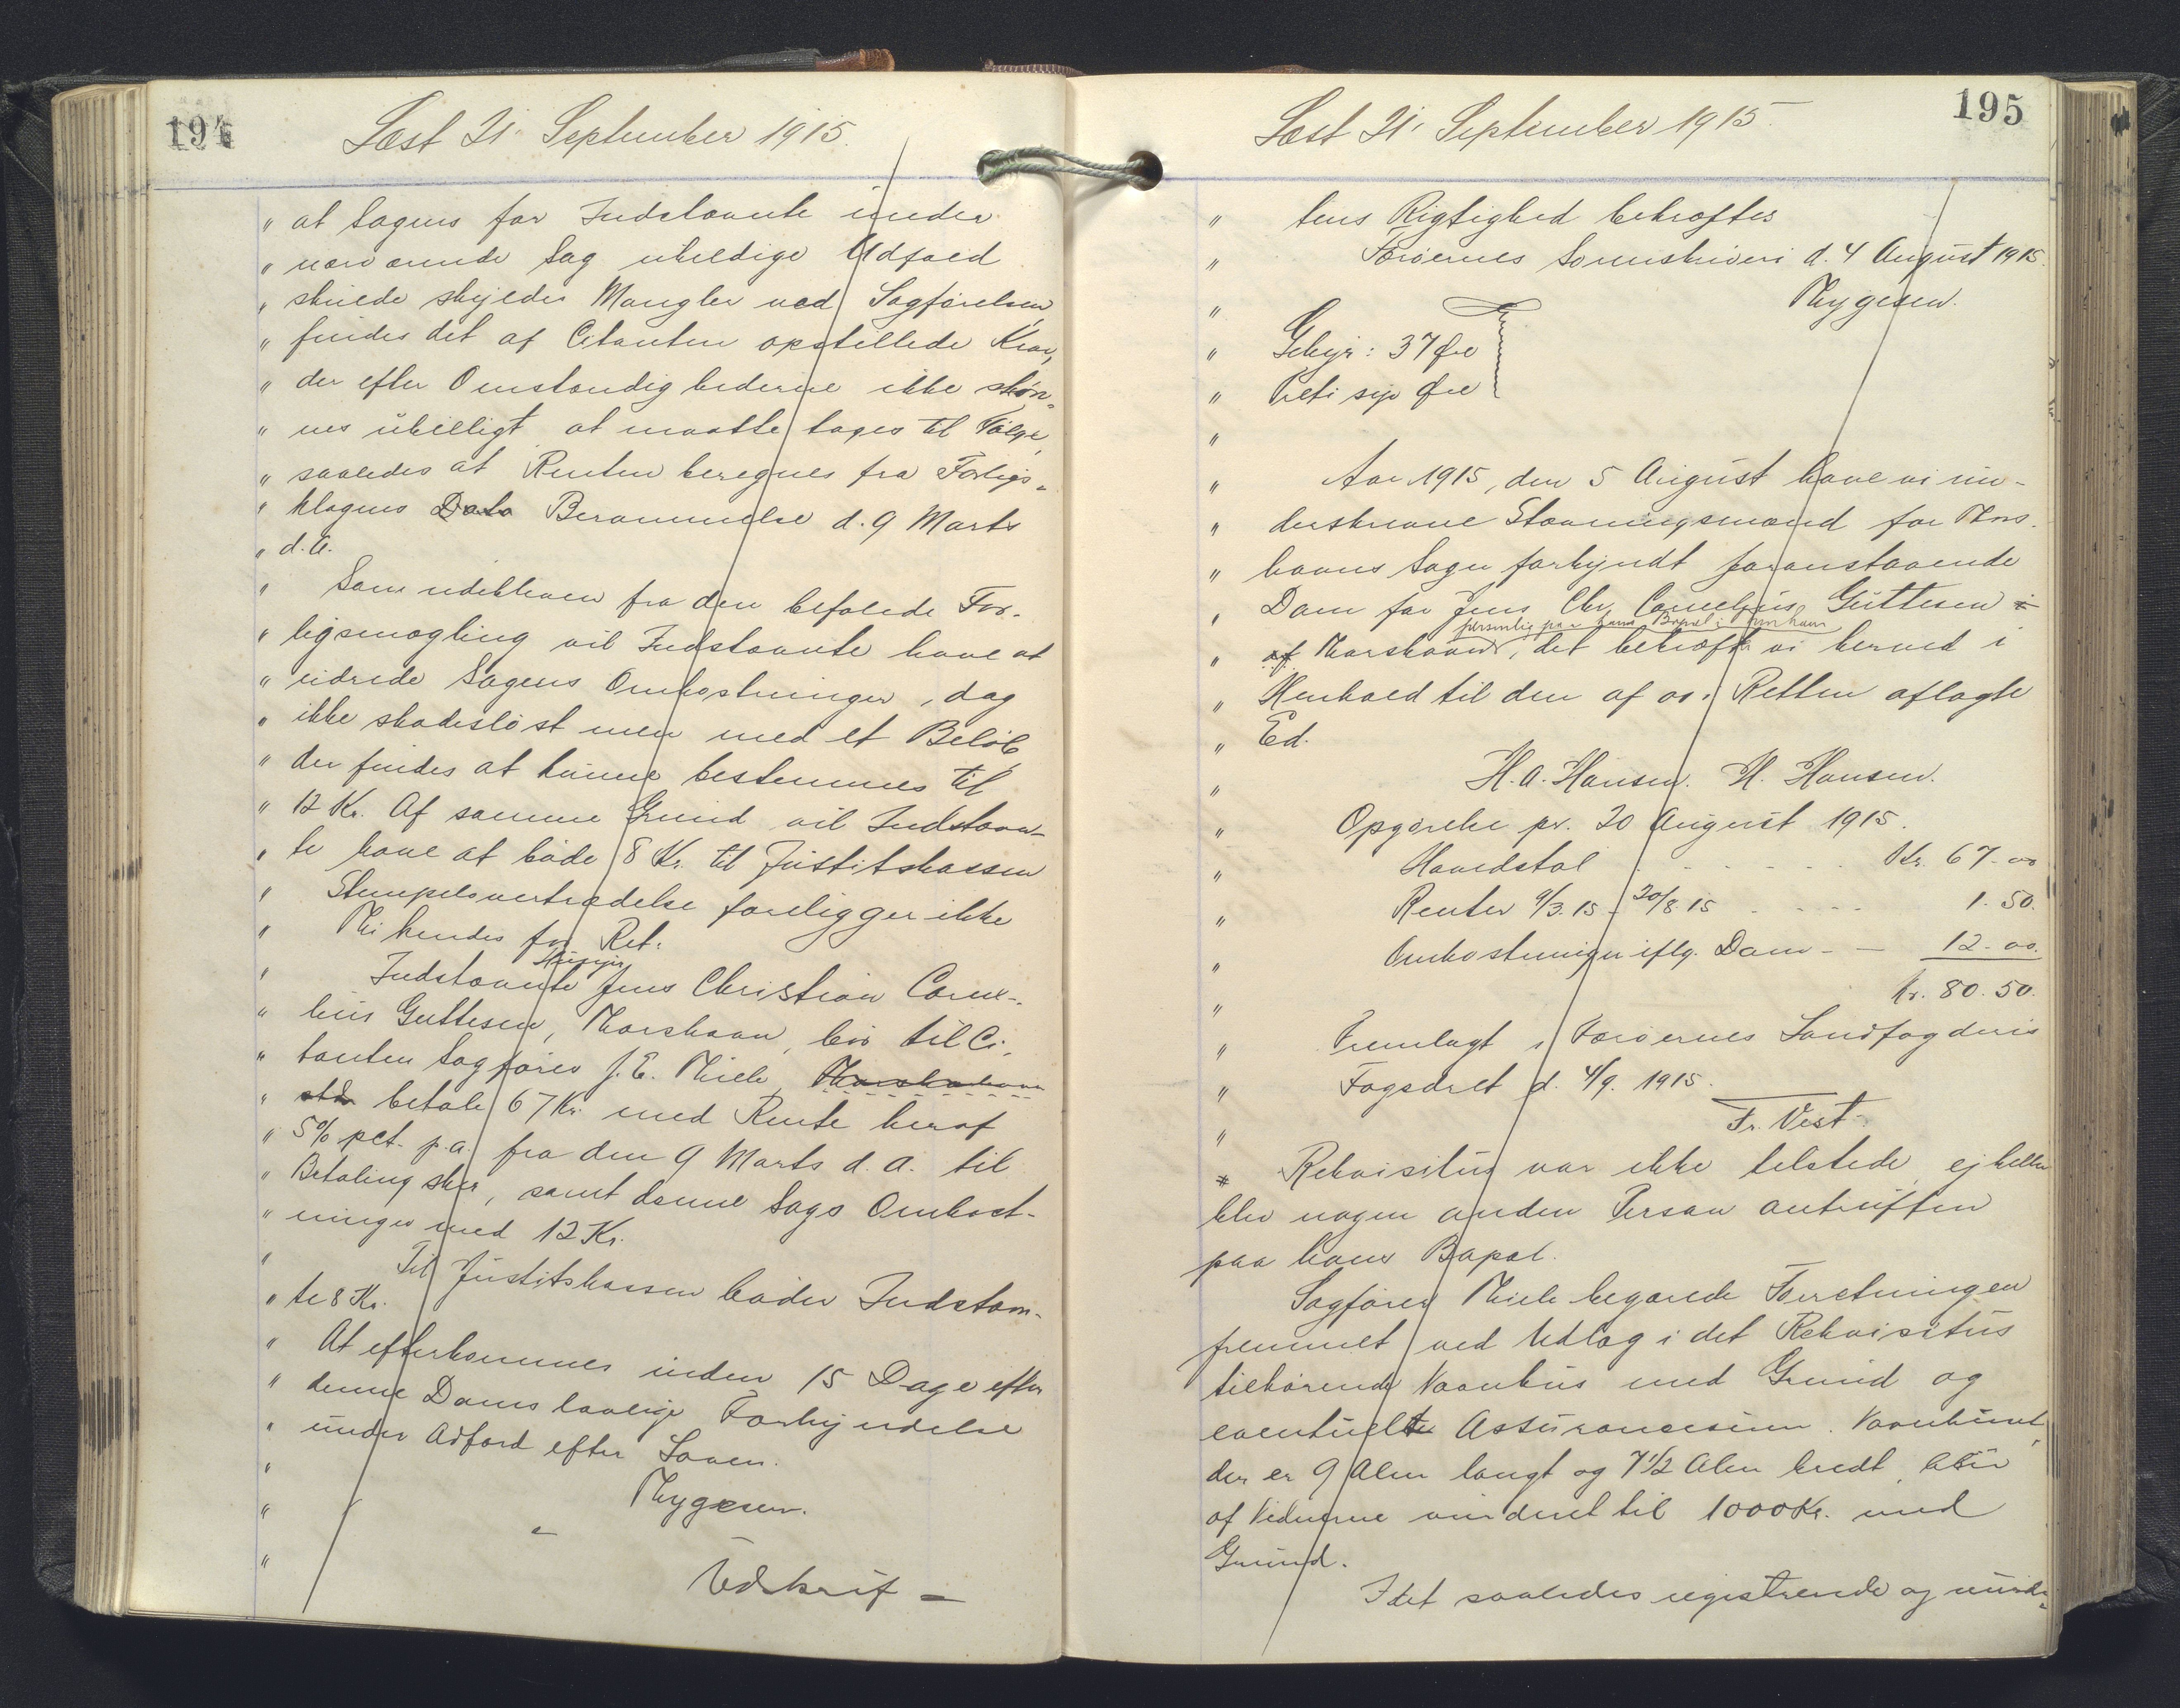 194
Læst 21' September 1915.
" at Sagens for Indstævnte under
" nærværende Sag uheldige Udfald
" skulde skyldes Mangler ved Sagførelsen,
" findes det af Citanten opstillede Krav,
" der efter Omstændighederne ikke skøn-
" nes ubilligt, at maatte tages til Følge,
" saaledes at Renten beregnes fra Forligs-
" klagens Dato Berammelse d. 9 Marts
" d. A.
" Som udebleven fra den befalede For-
" ligsmægling vil Indstævnte have at
" udrede Sagens Omkostninger, dog
" ikke skadesløst men med et Beløb,
" der findes at kunne bestemmes til
" 12 Kr. Af samme Grund vil Indstævn-
" te have at bøde 8 Kr. til Justitskassen
" Stempelovertrædelse foreligger ikke
" Thi kendes for Ret:
" Indstævnte Jens Christian Corne-
" lius Guttesen, Thorshavn, bør til Ci-
" tanten Sagfører J. E. Thiele, Thorshavn
" at betale 67 Kr. med Rente heraf
" 5% pct. p.a. fra den 9 Marts d. A. til
" Betaling sker, samt denne Sags Omkost-
" ninger med 12 Kr.
" Til Justitskassen bøder Indstævn-
" te 8 Kr.
" At efterkommes inden 15 Dage efter
" denne Doms lovlige Forkyndelse
" under Adfærd efter Loven.
" Thygesen.
"
" Udskrif-
195
Læst 21' September 1915.
" tens Rigtighed bekræftes
" Færøernes Sorenskriveri d. 4 August 1915.
" Thygesen.
" Gebyr: 37 Øre
" Treti syv Øre
"
" Aar 1915, den 5 August have vi un-
" derskrevne Stævningsmænd for Thors-
" havns Sogn forkyndt foranstaaende
" Dom for Jens Chr. Cornelius Guttesen i
personlig paa hans Bopæl i Thorshavn
" af Thorshavn, det bekræfte vi herved i
" Henhold til den af os i Retten aflagte
" Ed.
" H. A. Hansen. H. Hansen.
" Opgørelse pr. 20 August 1915.
" Hovedstol - - - - - - Kr. 67-00
" Renter 9/3.15 - 20/8.15 - - - - 1.50.
" Omkostninger iflg. Dom - - 12-00.
" Kr. 80.50.
" Fremlagt i Færøernes Landfogderis
" Fogedret d. 4/9. 1915.
" Fr. Vest.
" Rekvisitus var ikke tilstede, ej heller
blev nogen anden Person antruffen
paa hans Bopæl.
Sagfører Thiele begærede Forretningen
fremmet ved Udlæg i det Rekvisitus
tilhørende Vaanhus med Grund og
eventuelte Assurancesum. Vaanhuset,
der er 9 Alen langt og 7 1/2 Alen bredt, blev
af Vidnerne vurderet til 1000 Kr. med
Grund.
I det saaledes registrerede og vurde-